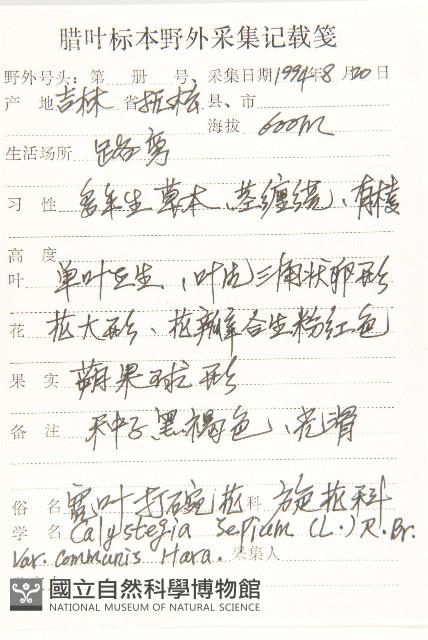 腊叶标本野外采集记载笺
野外号头：第 册 号、采集日期1994年8月20日
产 地吉林 省抚松县、市
海拔 600m
生活场所 路旁
习 性 多年生草本、茎缠绕、有棱
高 度
叶 单叶互生、叶片三角状卵形
花 花大形、花瓣合生粉红色
果 实 蒴果球形
备 注 种子黑褐色、光滑
俗 名 宽叶打碗花 科 旋花科
学 名 Calystegia Sepium (L.) R. Br.
Var. Communis Hara. 采集人
國立自然科學博物館
NATIONAL MUSEUM OF NATURAL SCIENCE